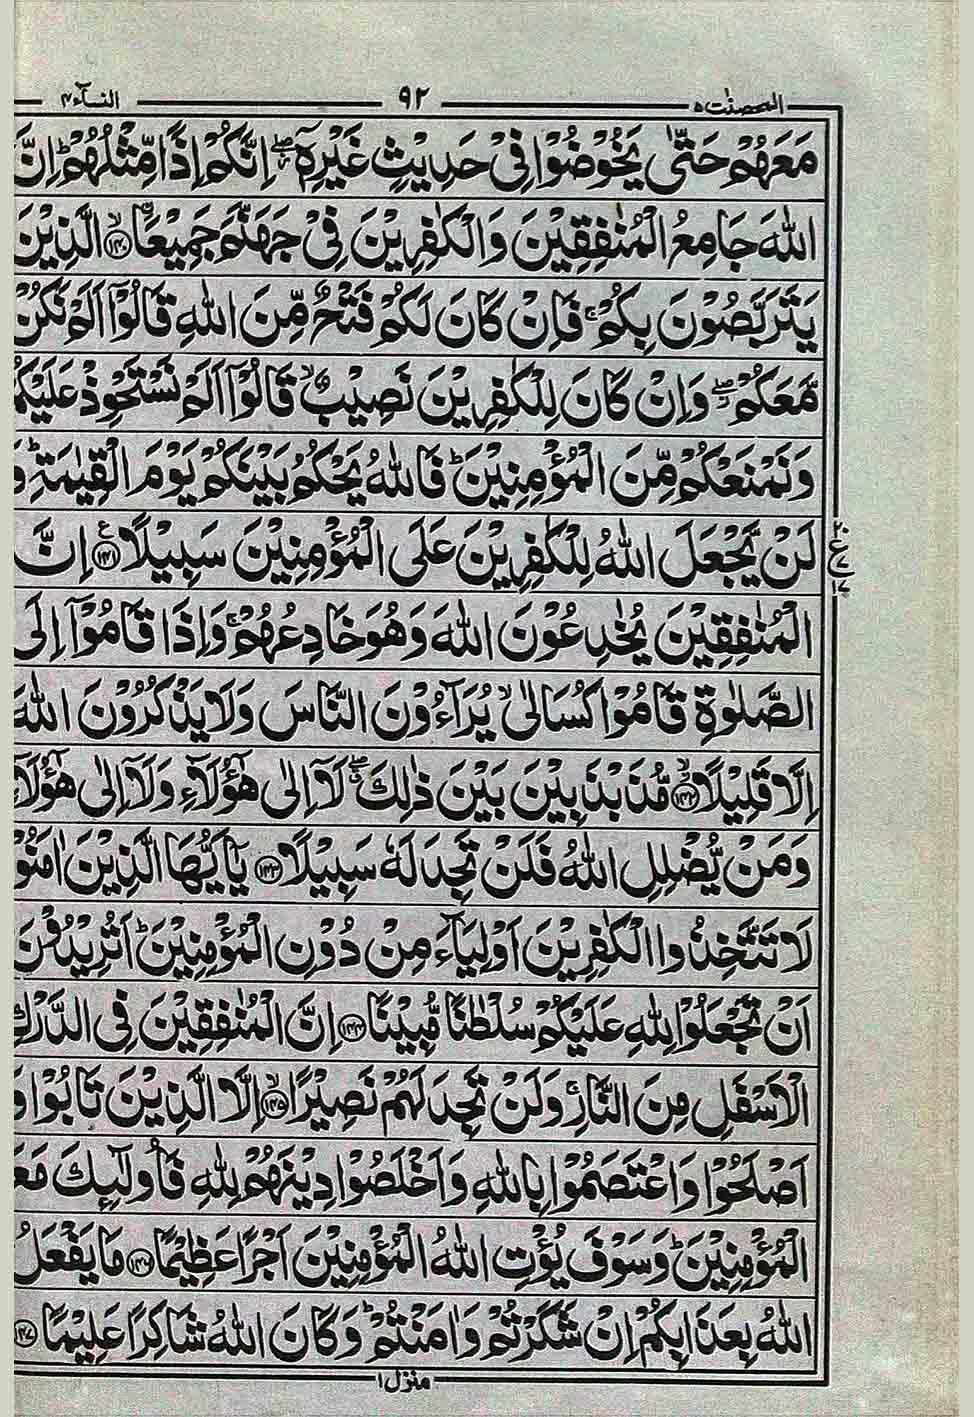 المحصنت ۵ ۹۲ النسآء ۴
مَعَهُمْ حَتّٰى يَخُوْضُوْا فِيْ حَدِيْثٍ غَيْرِهٖۤ ۖ اِنَّكُمْ اِذًا مِّثْلُهُمْ ؕ اِنَّ
اللّٰهَ جَامِعُ الْمُنٰفِقِيْنَ وَالْكٰفِرِيْنَ فِيْ جَهَنَّمَ جَمِيْعًا ۙ﴿۱۴۰﴾ الَّذِيْنَ
يَتَرَبَّصُوْنَ بِكُمْ ۚ فَاِنْ كَانَ لَكُمْ فَتْحٌ مِّنَ اللّٰهِ قَالُوْۤا اَلَمْ نَكُنْ
مَّعَكُمْ ۖ وَاِنْ كَانَ لِلْكٰفِرِيْنَ نَصِيْبٌ ۙ قَالُوْۤا اَلَمْ نَسْتَحْوِذْ عَلَيْكُمْ
وَنَمْنَعْكُمْ مِّنَ الْمُؤْمِنِيْنَ ؕ فَاللّٰهُ يَحْكُمُ بَيْنَكُمْ يَوْمَ الْقِيٰمَةِ ؕ وَ
لَنْ يَّجْعَلَ اللّٰهُ لِلْكٰفِرِيْنَ عَلَى الْمُؤْمِنِيْنَ سَبِيْلًا ﴿۱۴۱﴾ ع اِنَّ
الْمُنٰفِقِيْنَ يُخٰدِعُوْنَ اللّٰهَ وَهُوَ خَادِعُهُمْ ۚ وَاِذَا قَامُوْۤا اِلَى
الصَّلٰوةِ قَامُوْا كُسَالٰى ۙ يُرَآءُوْنَ النَّاسَ وَلَا يَذْكُرُوْنَ اللّٰهَ
اِلَّا قَلِيْلًا ۙ﴿۱۴۲﴾ مُّذَبْذَبِيْنَ بَيْنَ ذٰلِكَ ۖ لَاۤ اِلٰى هٰۤؤُلَآءِ وَلَاۤ اِلٰى هٰۤؤُلَآءِ
وَمَنْ يُّضْلِلِ اللّٰهُ فَلَنْ تَجِدَ لَهٗ سَبِيْلًا ﴿۱۴۳﴾ يٰۤاَيُّهَا الَّذِيْنَ اٰمَنُوْا
لَا تَتَّخِذُوا الْكٰفِرِيْنَ اَوْلِيَآءَ مِنْ دُوْنِ الْمُؤْمِنِيْنَ ؕ اَتُرِيْدُوْنَ
اَنْ تَجْعَلُوْا لِلّٰهِ عَلَيْكُمْ سُلْطٰنًا مُّبِيْنًا ﴿۱۴۴﴾ اِنَّ الْمُنٰفِقِيْنَ فِي الدَّرْكِ
الْاَسْفَلِ مِنَ النَّارِ ۚ وَلَنْ تَجِدَ لَهُمْ نَصِيْرًا ۙ﴿۱۴۵﴾ اِلَّا الَّذِيْنَ تَابُوْا وَ
اَصْلَحُوْا وَاعْتَصَمُوْا بِاللّٰهِ وَاَخْلَصُوْا دِيْنَهُمْ لِلّٰهِ فَاُولٰٓئِكَ مَعَ
الْمُؤْمِنِيْنَ ؕ وَسَوْفَ يُؤْتِ اللّٰهُ الْمُؤْمِنِيْنَ اَجْرًا عَظِيْمًا ﴿۱۴۶﴾ مَا يَفْعَلُ
اللّٰهُ بِعَذَابِكُمْ اِنْ شَكَرْتُمْ وَاٰمَنْتُمْ ؕ وَكَانَ اللّٰهُ شَاكِرًا عَلِيْمًا ﴿۱۴۷﴾
منزل ۱